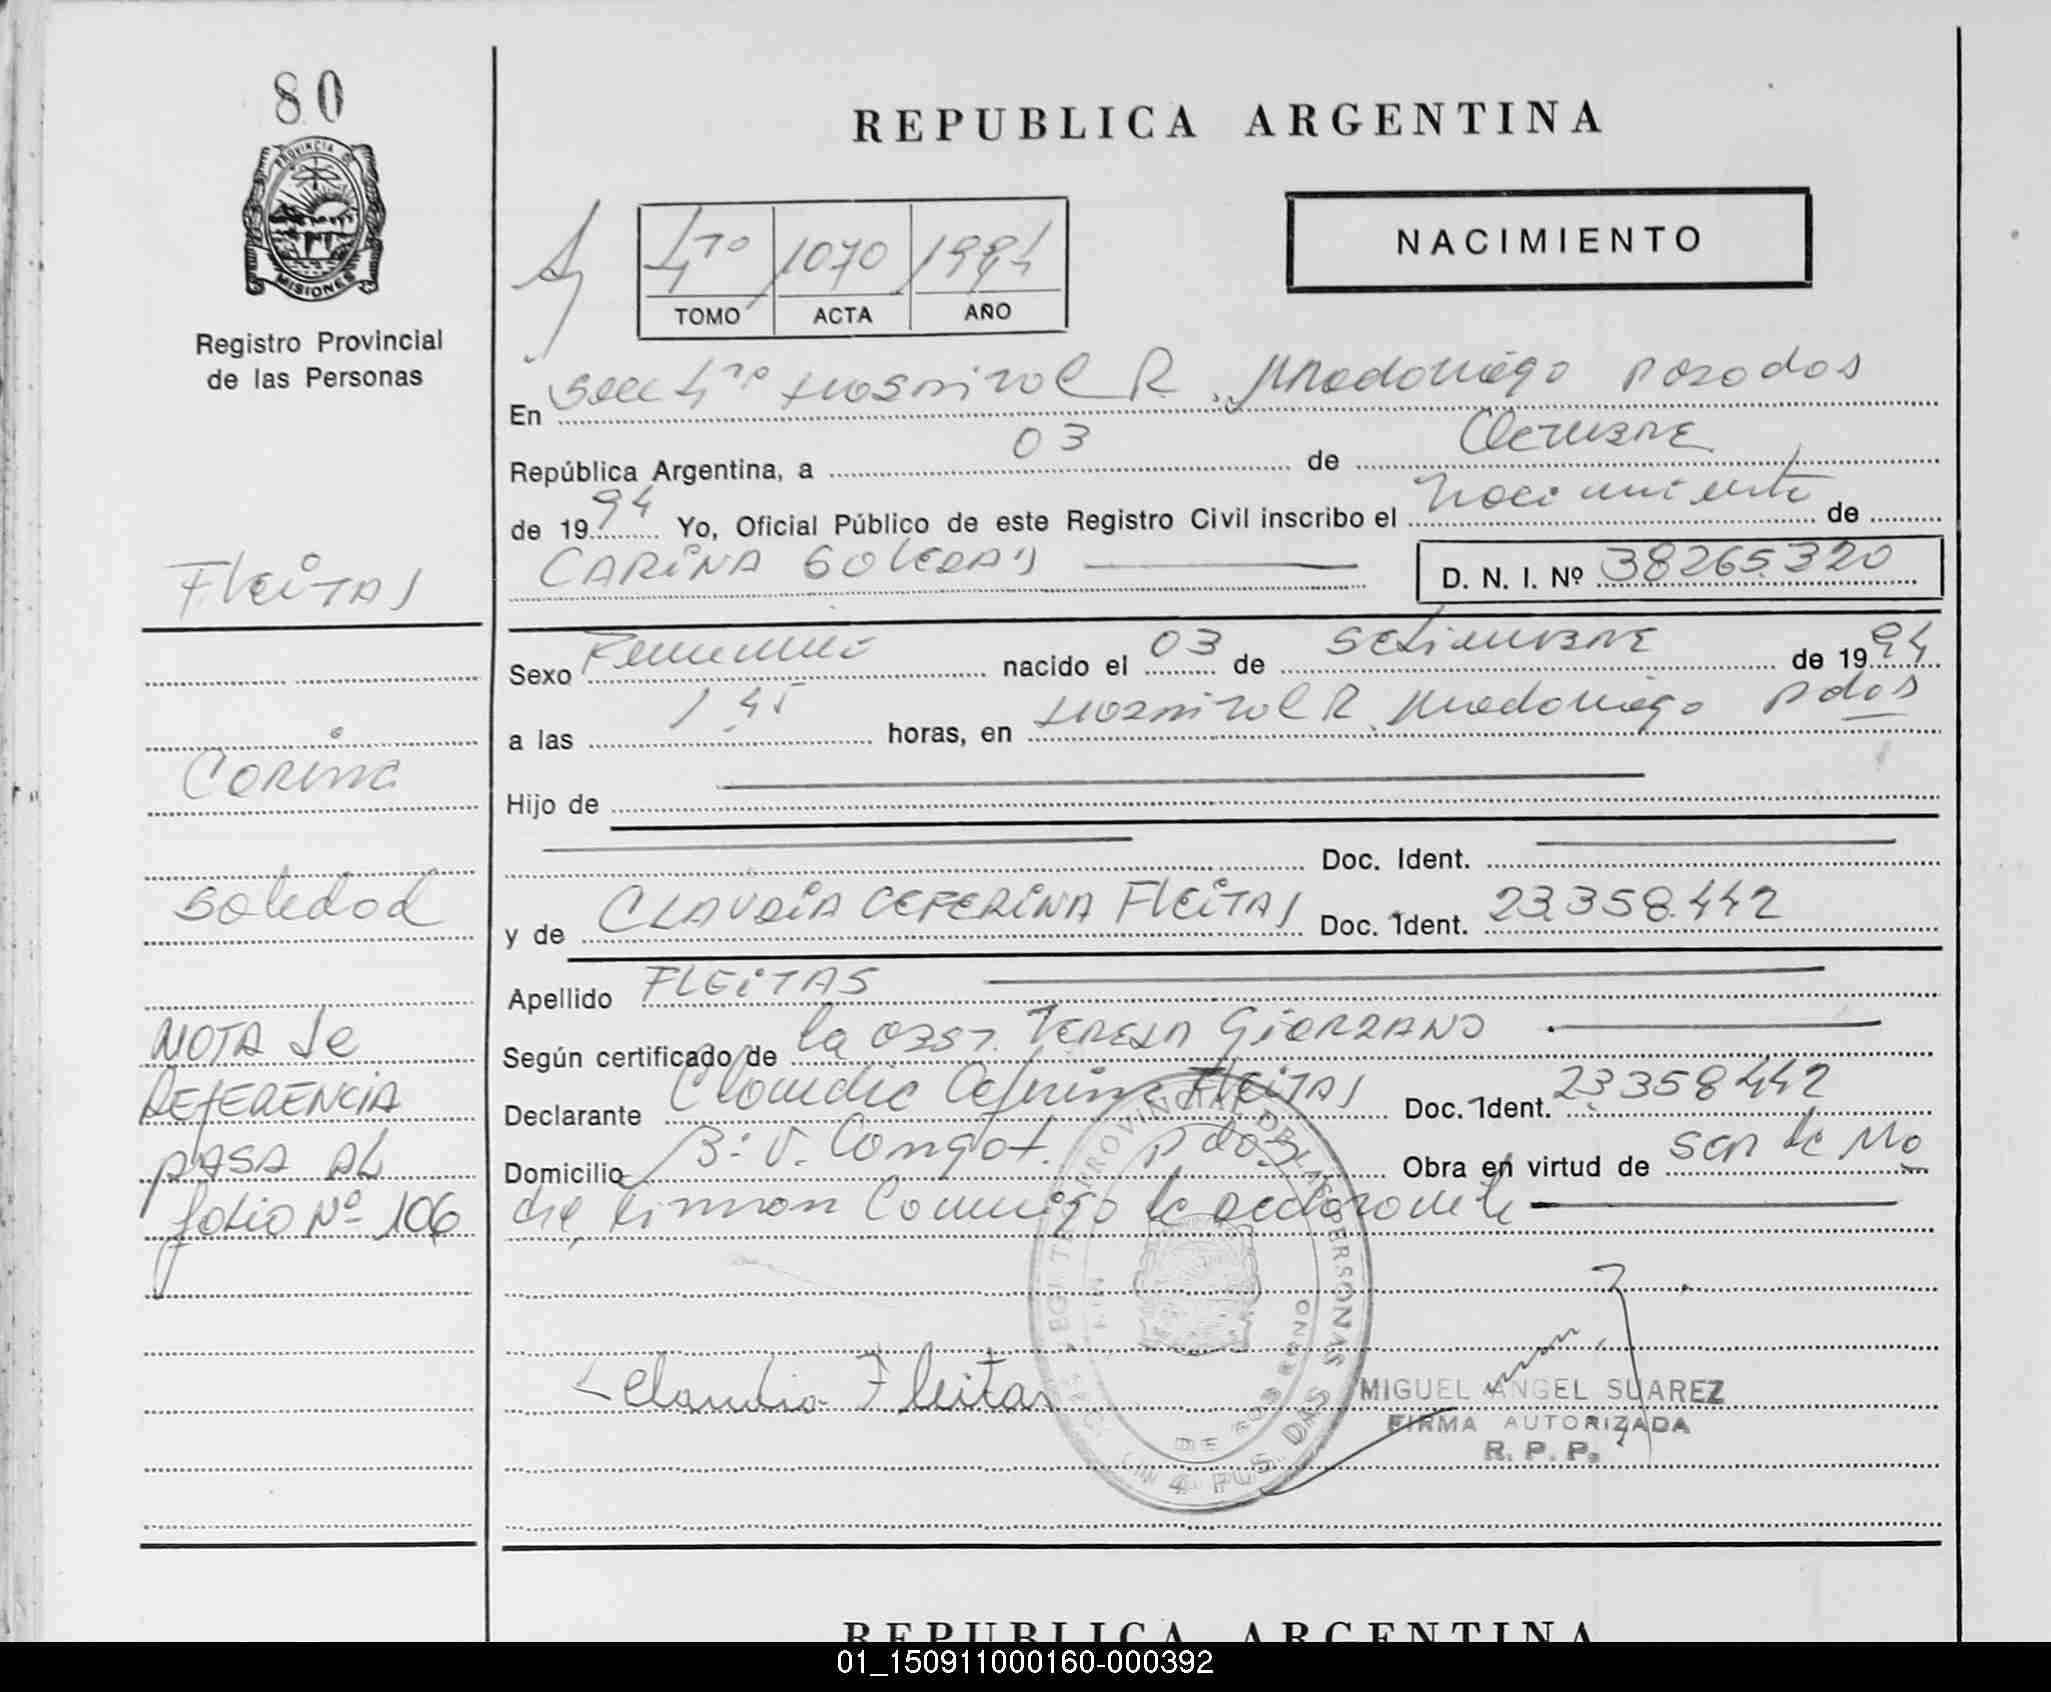 80
REPUBLICA ARGENTINA
PROVINCIA DE MISIONES
Registro Provincial
de las Personas
4to 1070 1994
TOMO ACTA AÑO
NACIMIENTO
En Secc 4ta Hospital R. Madariaga Posadas
República Argentina, a 03 de Octubre
de 1994 Yo, Oficial Público de este Registro Civil inscribo el Nacimiento de
CARINA SOLEDAD
D. N. I. Nº 38265.320
FLEITAS
Sexo Femenino nacido el 03 de Setiembre de 1994
a las 1 45 horas, en Hospital R. Madariaga Pdas
Carina
Hijo de
Doc. Ident.
Soledad
y de CLAUDIA CEFERINA FLEITAS Doc. Ident. 23.358.442
Apellido FLEITAS
NOTA de
REFERENCIA
PASA AL
folio Nº 106
Según certificado de la Obst. TERESA GIORDANO
Declarante Claudia Ceferina FLEITAS Doc. Ident. 23358442
Domicilio Bº V. Pdas Obra en virtud de ser la Ma
dre, firman Conmigo la declarante
PROVINCIAL DE LAS PERSONAS
Claudia Fleitas
MIGUEL ANGEL SUAREZ
FIRMA AUTORIZADA
R. P. P.
REPUBLICA ARGENTINA
01_150911000160-000392